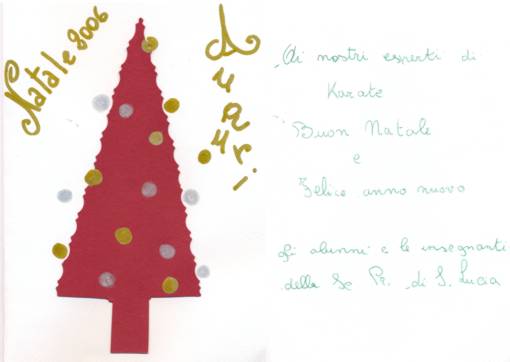 Natale 2006
Auguri
Ai nostri esperti di
Karate
Buon Natale
e
Felice anno nuovo
Gli alunni e le insegnanti
della Sc Pr. di S. Lucia